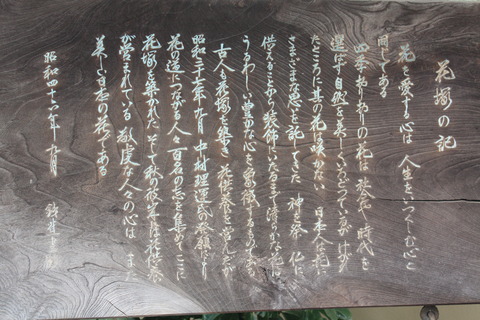 花塚の記
花を愛する心は 人生をいつくしむ心と
同じである
四季おりおりの花は 社会や時代を
選ばず自然を美しくいろどっているが けがれ
たところに其の花は咲かない 日本人は花に
さまざまな心を託してきた 神に祭り 仏に
備えることから装飾いたるまで清らかな花に
うるわしい豊かな心を象徴するものである
古人も花塚を築き 花供養を営んだが
昭和三十六年九月 中村理運氏の発願により
花の道につながる人々百名の志を集めて ここに
花塚を築かれた そして秋の彼岸に花供養
が営まれている 敬虔な人々の心は また
美しい日本の花である
昭和四十六年 九月